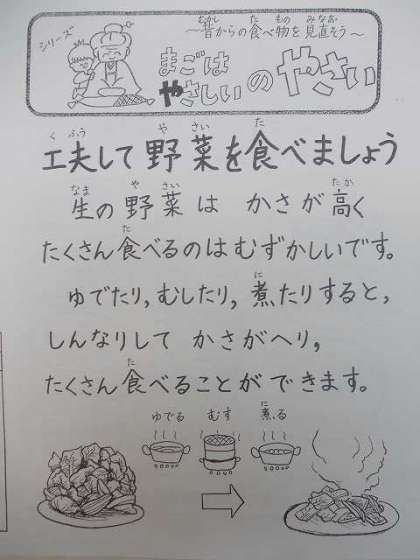 シリーズ
～昔からの食べ物を見直そう～
まごは
やさしいのやさい
工夫して野菜を食べましょう
生の野菜は かさが高く
たくさん食べるのはむずかしいです。
ゆでたり,むしたり,煮たりすると,
しんなりして かさがへり,
たくさん食べることができます。
ゆでる むす 煮る